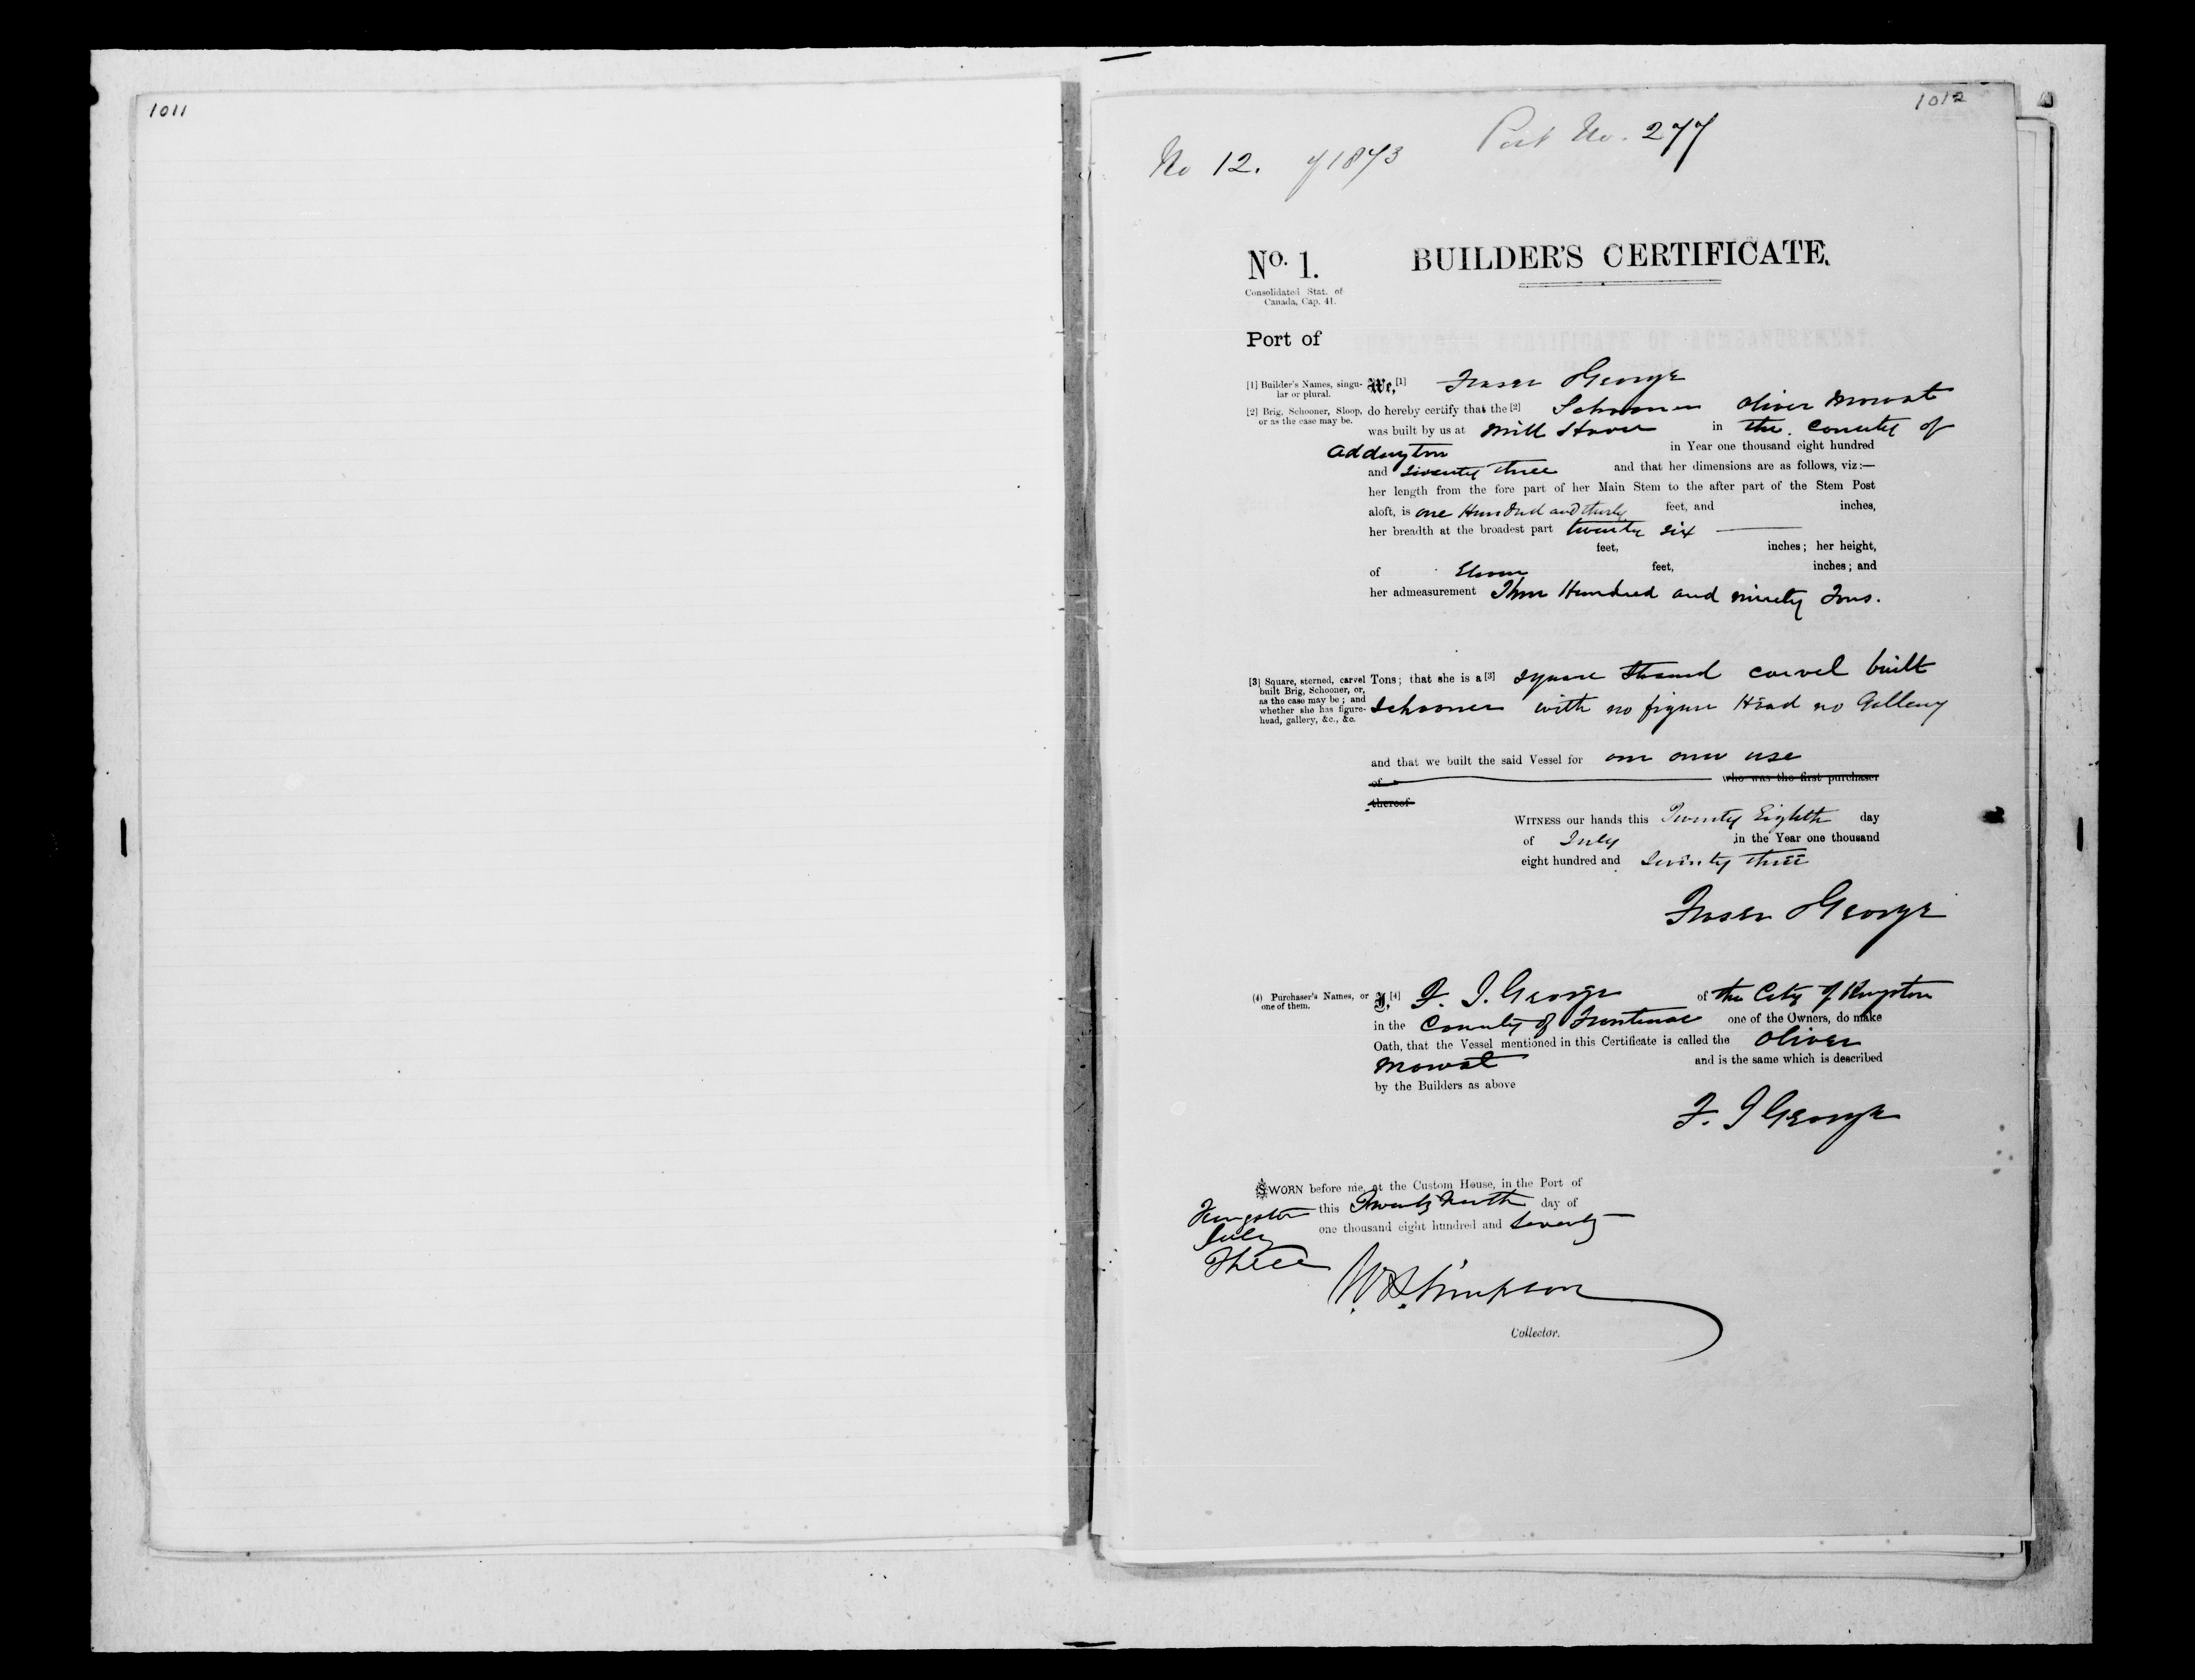 1011
1012
Port No. 277
No 12. of 1873
No. 1. BUILDER'S CERTIFICATE.
Consolidated Stat. of
Canada, Cap. 41.
Port of
[1] Builder's Names, singu-
lar or plural.
We,[1] Fraser George
[2] Brig, Schooner, Sloop,
or as the case may be.
do hereby certify that the [2] Schooner Oliver Mowat
was built by us at Mill Haven in the County of
Addington in Year one thousand eight hundred
and Seventy three and that her dimensions are as follows, viz:—
her length from the fore part of her Main Stem to the after part of the Stem Post
aloft, is one Hundred and thirty feet, and inches,
her breadth at the broadest part twenty six
feet, inches; her height,
of Eleven feet, inches; and
her admeasurement Three Hundred and ninety Tons.
[3] Square, sterned, carvel
built Brig, Schooner, or,
as the case may be; and
whether she has figure-
head, gallery, &c., &c.
Tons; that she is a [3] square sterned carvel built
Schooner with no figure Head no Gallery
and that we built the said Vessel for our own use
of who was the first purchaser
thereof
WITNESS our hands this Twenty Eighth day
of July in the Year one thousand
eight hundred and Seventy three
Fraser George
(4) Purchaser's Names, or
one of them.
I,[4] F. I. George of the City of Kingston
in the County of Frontenac one of the Owners, do make
Oath, that the Vessel mentioned in this Certificate is called the Oliver
Mowat and is the same which is described
by the Builders as above
F. I George
SWORN before me, at the Custom House, in the Port of
Kingston this Twenty Ninth day of
July one thousand eight hundred and Seventy
Three
W. S. Simpson
Collector.